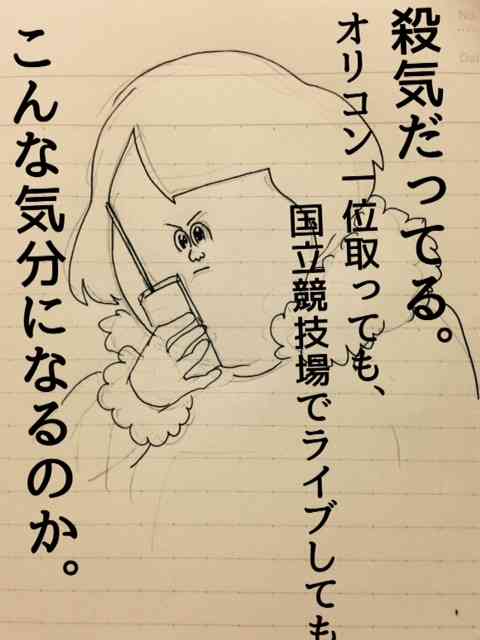 殺気だってる。
オリコン一位取っても、
国立競技場でライブしても
こんな気分になるのか。